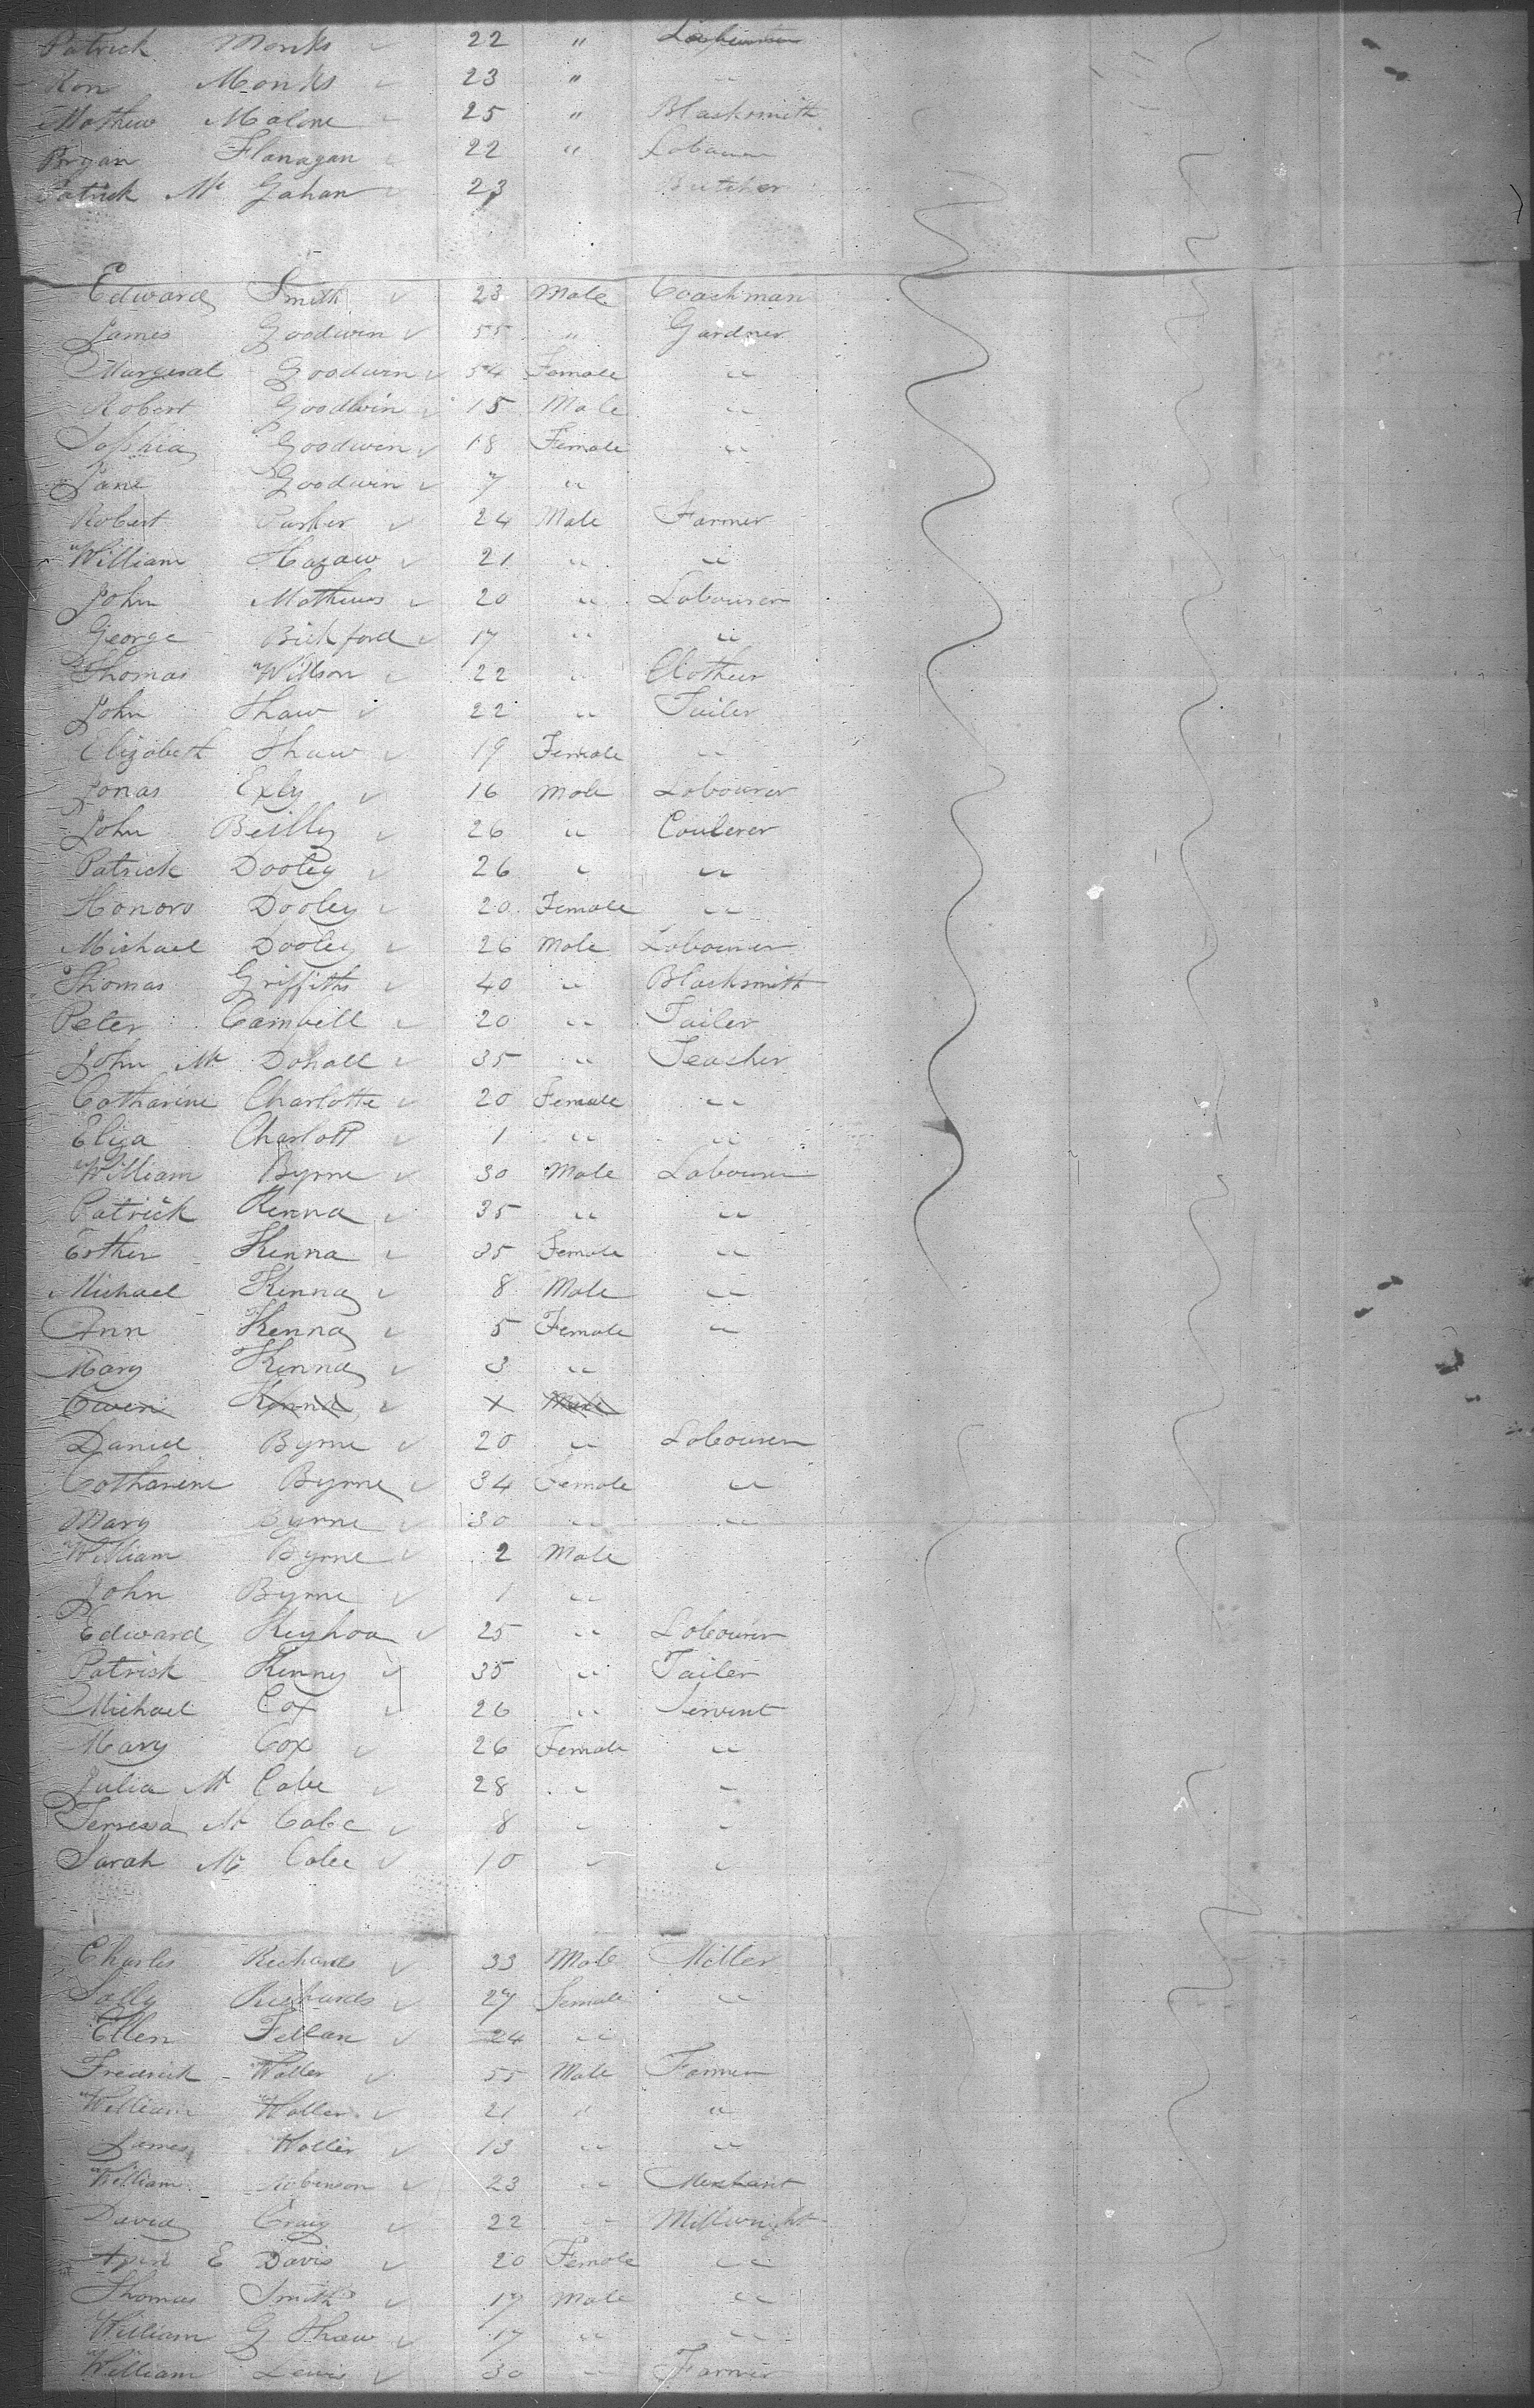 Patrick Monks 22 " Labourer
Monks 23 "
Mathew Malone 25 " Blacksmith
Bryan Flanagan 22 " Labourer
Patrick Mc Gahan 23 Butcher
Edward Smith 23 Male Coachman
James Goodwin 55 " Gardner
Margeret Goodwin 54 Female "
Robert Goodwin 15 Male "
Sophia Goodwin 18 Female "
Jane Goodwin 7 "
Robert Parker 24 Male Farmer
William 21 " "
John Mathews 20 " Labourer
George Bickford 17 " "
Thomas Willson 22 " Clothier
John Shaw 22 " Tailer
Elizabeth Shaw 19 Female "
Jonas Exly 16 Male Labourer
John Beilly 26 " Coulerer
Patrick Dooley 26 " "
Honoro Dooley 20 Female "
Michael Dooley 26 Male Labourer
Thomas Griffiths 40 " Blacksmith
Peter Cambell 20 " Tailer
John Mc 35 " Teacher
Catharine Charlotte 20 Female "
Eliza Charlott 1 " "
William Byrne 30 Male Labourer
Patrick Kenna 35 " "
Esther Kenna 35 Female "
Michael Kenna 8 Male "
Ann Kenna 5 Female "
Mary Kenna 3 "
Owen Kenna Male
Daniel Byrne 20 " Labourer
Catharine Byrne 34 Female "
Mary Byrne 30 " "
William Byrne 2 Male
John Byrne 1 "
Edward Keyhoa 25 " Labourer
Patrick Kenny 35 " Tailer
Michael Cox 26 " Servent
Mary Cox 26 Female "
Julia Mc Cabe 28 " "
Terressa Mc Cabe 8 " "
Sarah Mc Cabe 10 " "
Charles Richards 33 Male Miller
Sally Richards 27 Female "
Ellen Fellan 24 "
Fredrick Waller 55 Male Farmer
William Waller 21 " "
James Waller 13 " "
William Robinson 23 " Merchant
David Craig 22 " Millwright
E Davis 20 Female "
Thomas Smith 17 Male "
William G Shaw 17 " "
William Lewis 30 " Farmer